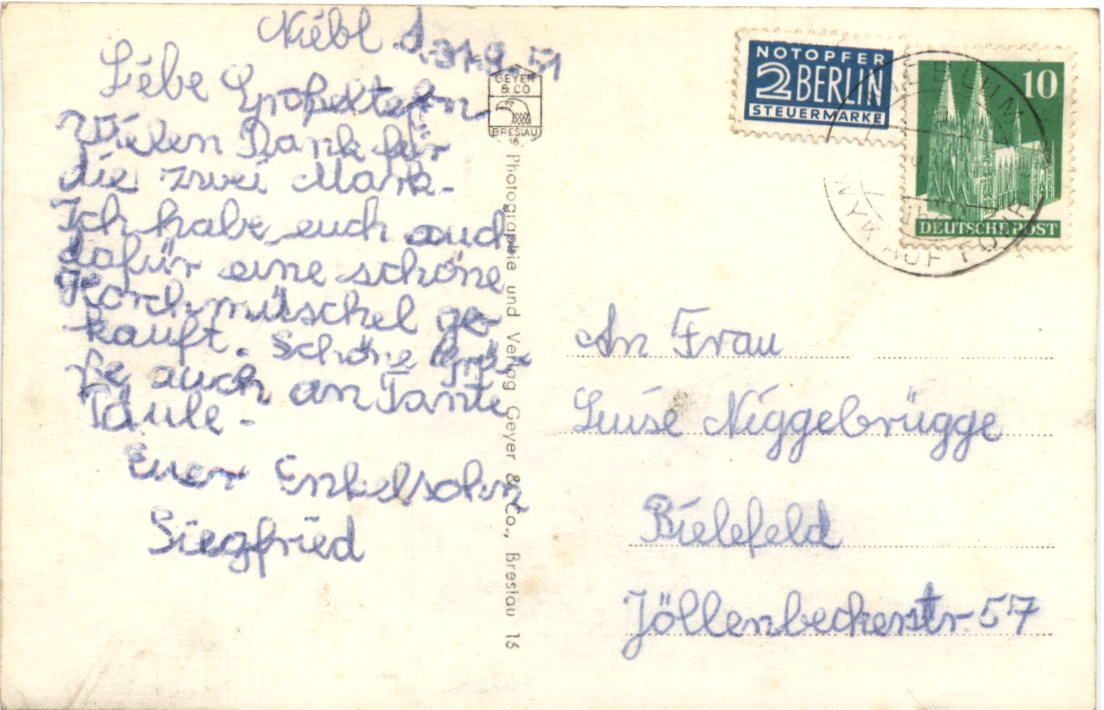 Niébl d. 31.9.51
Liebe Großeltern
Vielen Dank für
die zwei Mark.
Ich habe euch auch
dafür eine schöne
Horchmuschel ge-
kauft. Schöne Grü-
ße auch an Tante
Paule.
Euer Enkelsohn
Siegfried
GEYER
& CO
BRESLAU
Photographie und Verlag Geyer & Co., Breslau 15
NOTOPFER
2 BERLIN
STEUERMARKE
10
DEUTSCHE POST
WYK AUF FÖHR
An Frau
Luise Niggebrügge
Bielefeld
Jöllenbeckerstr. 57